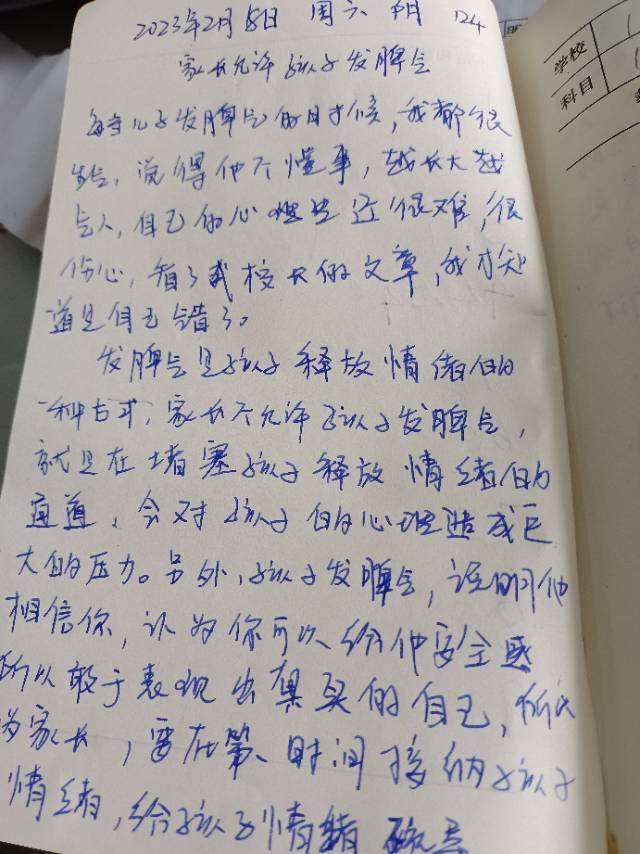 2023年2月18日 周六 阴 124
家长允许孩子发脾气
每当儿子发脾气的时候,我都很
生气,觉得他不懂事,越长大越
气人,自己的心里也还很难,很
伤心,看了武校长的文章,我才知
道是自己错了。
发脾气是孩子释放情绪的
一种方式,家长不允许孩子发脾气,
就是在堵塞孩子释放情绪的
通道,会对孩子的心理造成巨
大的压力。另外,孩子发脾气,说明他
相信你,认为你可以给他安全感
所以敢于表现出真实的自己,所以
为家长,要在第一时间接纳孩子
情绪,给孩子情绪
学校
科目